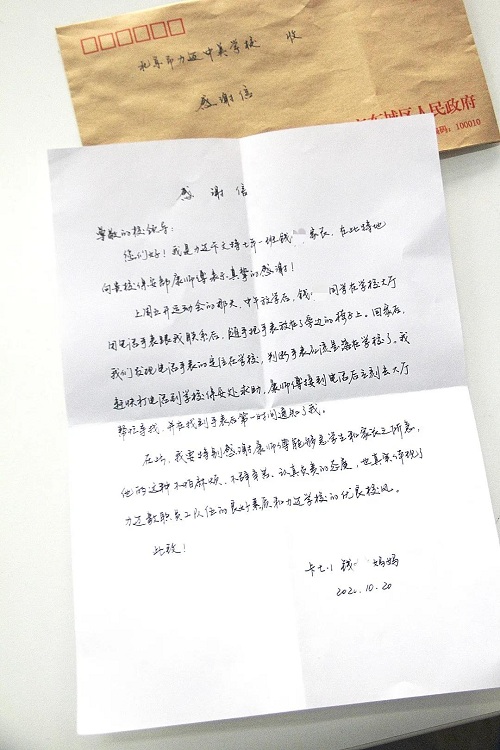 北京市力迈中美学校 收
感谢信
东城区人民政府
编码：100010
感谢信
尊敬的校领导：
您们好！我是力迈 七年一班钱 家长，在此特地
向贵校保安部康师傅表示真挚的感谢！
上周五开运动会的那天，中午放学后，钱 同学在学校大厅
用电话手表跟我联系后，随手把手表放在了旁边的椅子上。回家后，
我们发现电话手表的定位在学校，判断手表应该是落在学校了。我
赶快打电话到学校保安处求助，康师傅接到电话后立刻去大厅
帮忙寻找，并在找到手表后第一时间通知了我。
在此，我要特别感谢康师傅能够急学生和家长之所急，
他的这种不怕麻烦、不辞辛苦、认真负责的态度，也真实体现了
力迈教职员工队伍的良好素质和力迈学校的优良校风。
此致！
钱 妈妈
10.20